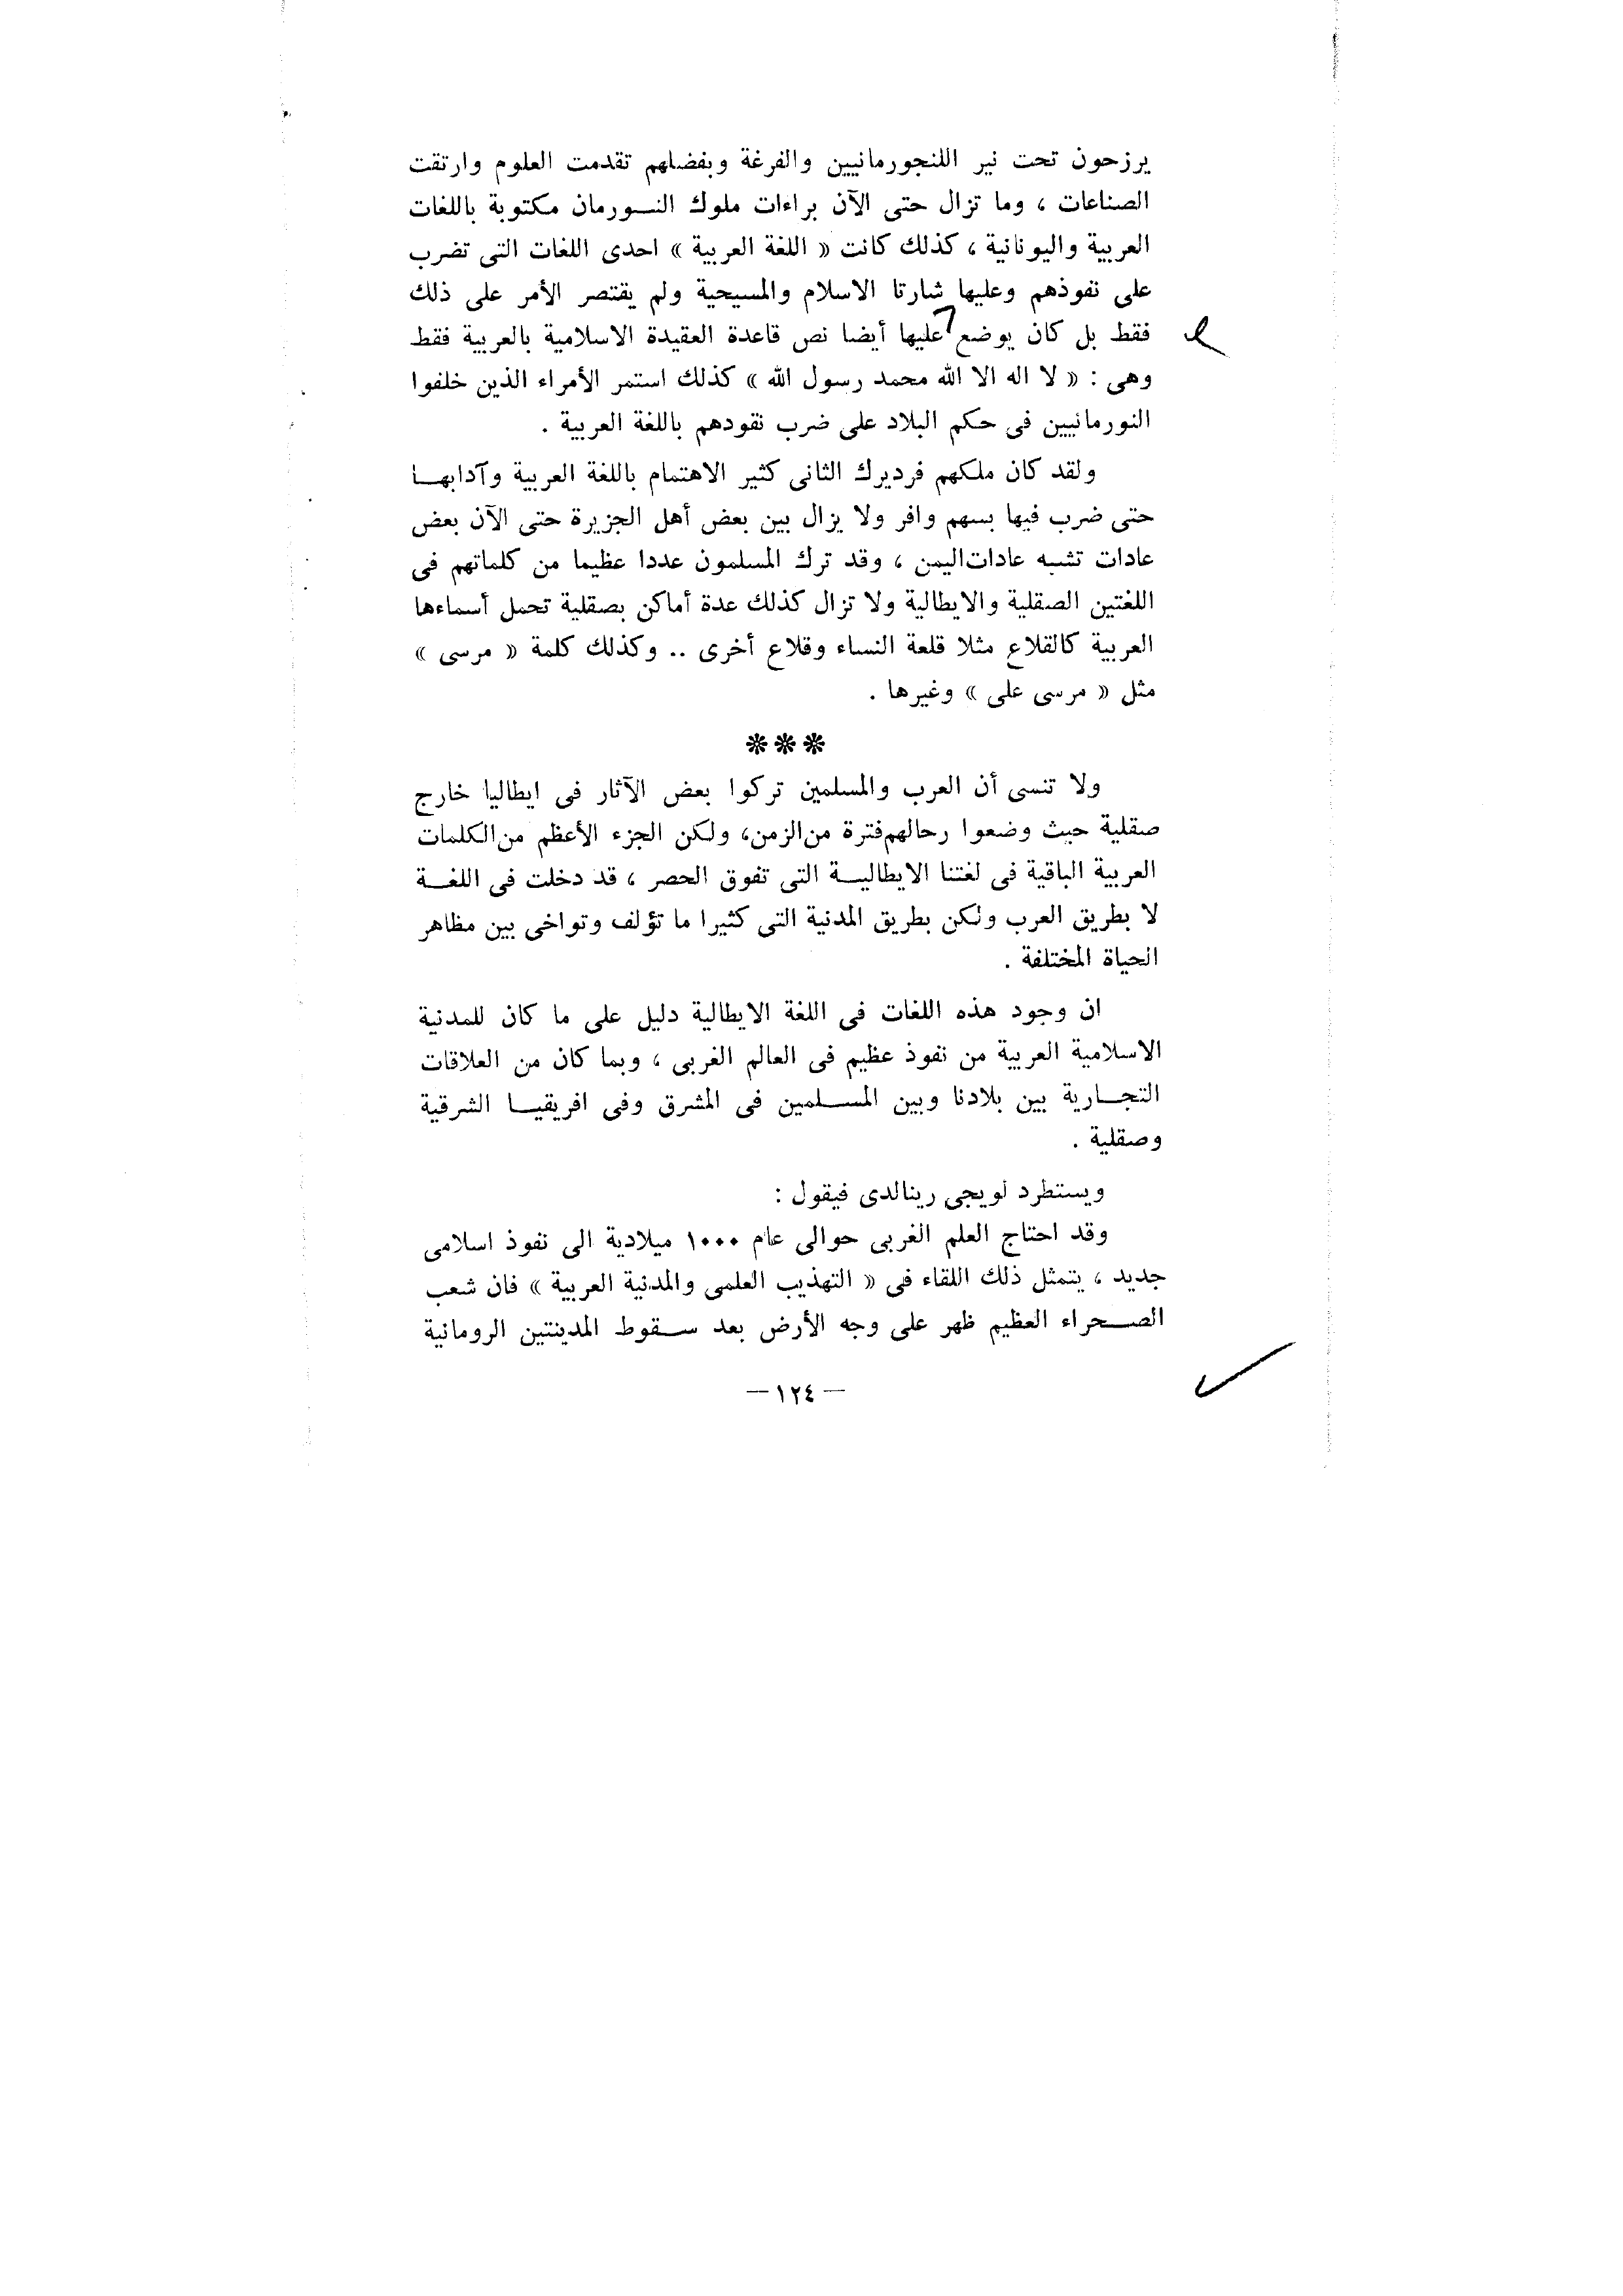 يرزحون تحت نير اللنجورمانيين والفرغة وبفضلهم تقدمت العلوم وارتقت
الصناعات ، وما تزال حتى الآن براءات ملوك النــورمان مكتوبة باللغات
العربية واليونانية ، كذلك كانت « اللغة العربية » احدى اللغات التى تضرب
على نفوذهم وعليها شارتا الاسلام والمسيحية ولم يقتصر الأمر على ذلك
فقط بل كان يوضع عليها أيضا نص قاعدة العقيدة الاسلامية بالعربية فقط
وهى : « لا اله الا الله محمد رسول الله » كذلك استمر الأمراء الذين خلفوا
النورمانيين فى حكم البلاد على ضرب نقودهم باللغة العربية .
ولقد كان ملكهم فرديرك الثانى كثير الاهتمام باللغة العربية وآدابهــا
حتى ضرب فيها بسهم وافر ولا يزال بين بعض أهل الجزيرة حتى الآن بعض
عادات تشبه عادات اليمن ، وقد ترك المسلمون عددا عظيما من كلماتهم فى
اللغتين الصقلية والايطالية ولا تزال كذلك عدة أماكن بصقلية تحمل أسماءها
العربية كالقلاع مثلا قلعة النساء وقلاع أخرى .. وكذلك كلمة « مرسى »
مثل « مرسى على » وغيرها .
***
ولا تنسى أن العرب والمسلمين تركوا بعض الآثار فى ايطاليا خارج
صقلية حيث وضعوا رحالهم فترة من الزمن، ولكن الجزء الأعظم من الكلمات
العربية الباقية فى لغتنا الايطاليــة التى تفوق الحصر ، قد دخلت فى اللغــة
لا بطريق العرب ولكن بطريق المدنية التى كثيرا ما تؤلف وتواخى بين مظاهر
الحياة المختلفة .
ان وجود هذه اللغات فى اللغة الايطالية دليل على ما كان للمدنية
الاسلامية العربية من نفوذ عظيم فى العالم الغربى ، وبما كان من العلاقات
التجــارية بين بلادنا وبين المســلمين فى المشرق وفى افريقيــا الشرقية
وصقلية .
ويستطرد لويجى رينالدى فيقول :
وقد احتاج العلم الغربى حوالى عام ١٠٠٠ ميلادية الى نفوذ اسلامى
جديد ، يتمثل ذلك اللقاء فى « التهذيب العلمى والمدنية العربية » فان شعب
الصــحراء العظيم ظهر على وجه الأرض بعد ســقوط المدينتين الرومانية
— ١٢٤ —